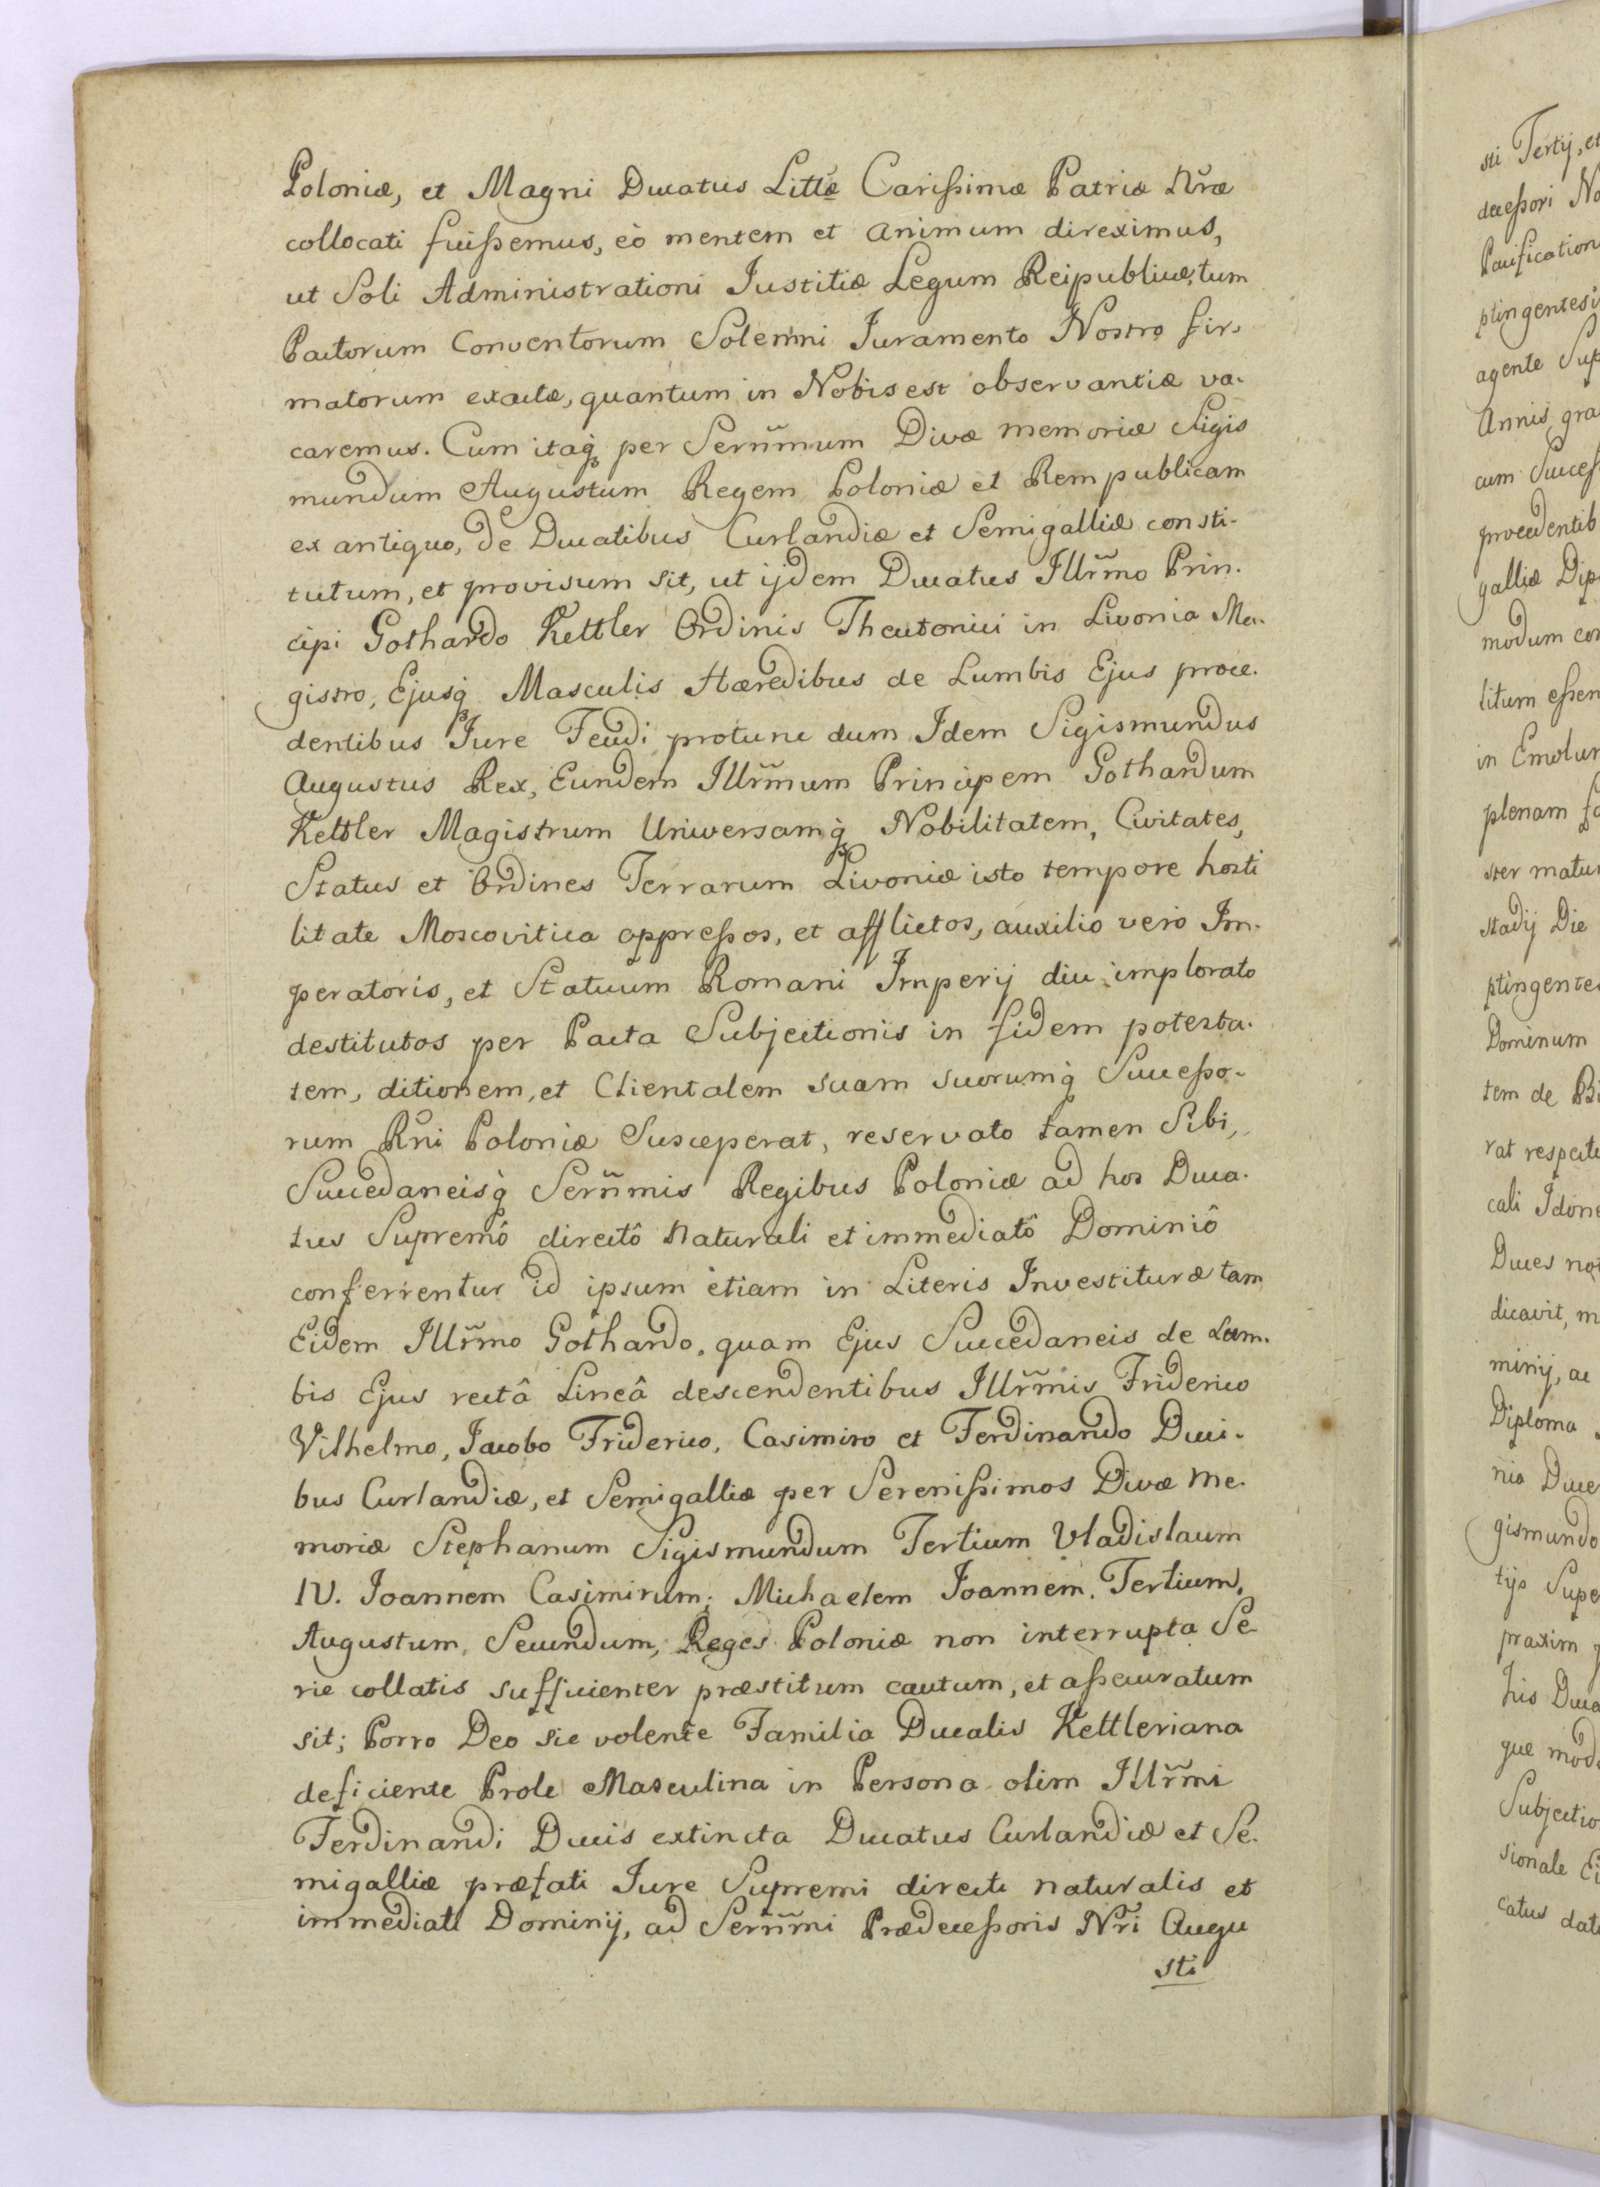 Poloniæ, et Magni Ducatus Littæ Carißimæ Patriæ Nr̃æ
collocati fuißemus, eò mentem et animum direximus,
ut Soli Administrationi Justitiæ Legum Reipublicæ, tum
Pactorum Conventorum Solemni Juramento Nostro fir-
matorum exactæ, quantum in Nobis est observantiæ va-
caremus. Cum itaq̃ per Sern̄mum Divæ memoriæ Sigis
mundum Augustum Regem Poloniæ et Rempublicam
ex antiquo, de Ducatibus Curlandiæ et Semigalliæ consti-
tutum, et provisum sit, ut ijdem Ducatus Illr̃mo Prin-
cipi Gothardo Kettler Ordinis Theutonici in Livonia Ma-
gistro, Ejusq̃ Masculis Hæredibus de Lumbis Ejus proce-
dentibus Jure Feudi protunc dum Idem Sigismundus
Augustus Rex, Eundem Illr̃mum Principem Gothardum
Kettler Magistrum Universamq̃ Nobilitatem, Civitates,
Status et Ordines Terrarum Livoniæ isto tempore hosti
litate Moscovitica oppreßos, et afflictos, auxilio vero Im-
peratoris, et Statuum Romani Imperij diu implorato
destitutos per Pacta Subjectionis in fidem potesta-
tem, ditionem, et Clientalem suam suorumq̃ Succeßo-
rum Rñi Poloniæ Susceperat, reservato tamen Sibi,
Succedaneisq̃ Sern̄mis Regibus Poloniæ ad hos Duca-
tus Supremô directô naturali et immediatô Dominiô
conferrentur id ipsum etiam in Literis Investituræ tam
Eidem Illr̃mo Gothardo, quam Ejus Succedaneis de Lum-
bis Ejus rectâ Lineâ descendentibus Illr̃mis Friderico
Vilhelmo, Jacobo Friderico, Casimiro et Ferdinando Duci-
bus Curlandiæ, et Semigalliæ per Serenißimos Divæ me-
moriæ Stephanum Sigismundum Tertium Vladislaum
IV. Joannem Casimirum, Michaelem Joannem Tertium,
Augustum, Secundum, Reges Poloniæ non interrupta Se-
rie collatis sufficienter præstitum cautum, et aßecuratum
sit; Porro Deo sic volente Familia Ducalis Kettleriana
deficiente Prole Masculina in Persona olim Illr̃mi
Ferdinandi Ducis extincta Ducatus Curlandiæ et Se-
migalliæ præfati Jure Supremi directi naturalis et
immediati Dominij, ad Sern̄mi Prædeceßoris Nr̃i Augu
sti
sti Tertij, et
deceßori No
Pacification
ptingentesi
agente Sup
Annis gra
cum Succeß
procedentib
galliæ Dip
modum con
litum eßen
in Emolum
plenam fa
ster matur
stadij Die
ptingentes
Dominum
tem de Bi
rat respectu
cali Idone
Duces no
dicavit, m
minij, ac
Diploma
nia Duce
gismundo
tijs Supe
praxim
his Duca
que modo
Subjectio
sionale Ei
catus dat